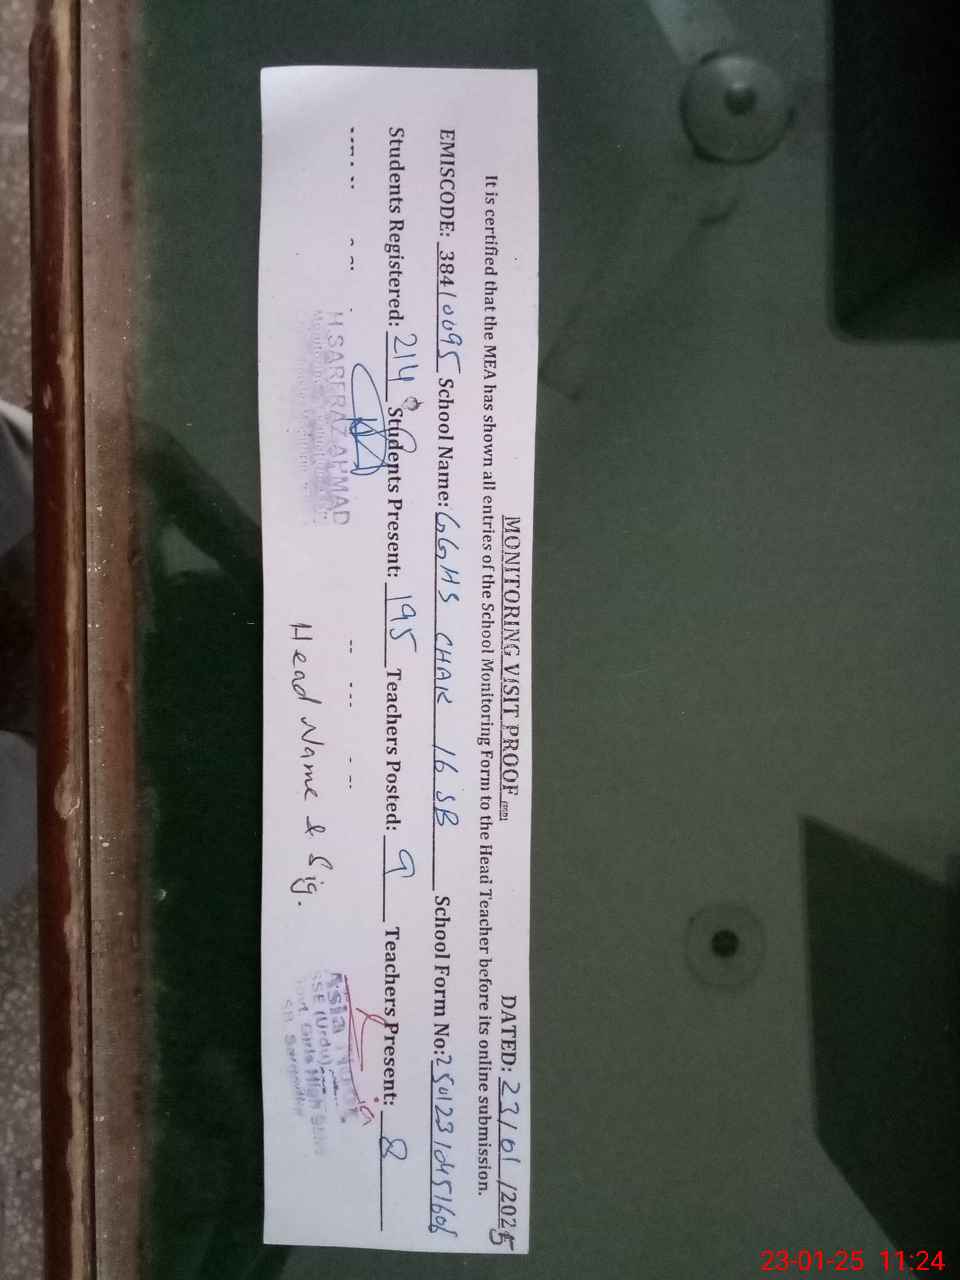 MONITORING VISIT PROOF
DATED: 23/01/2025
It is certified that the MEA has shown all entries of the School Monitoring Form to the Head Teacher before its online submission.
EMISCODE: 38410095 School Name: GGHS CHAK 16 SB School Form No:
Students Registered: 214 Students Present: 195 Teachers Posted: 9 Teachers Present: 8
H.SARFRAZ AHMAD
Head Name & Sig.
Asia
SSE (Urdu)
Govt. Girls High
SB Sargodha
23-01-25 11:24